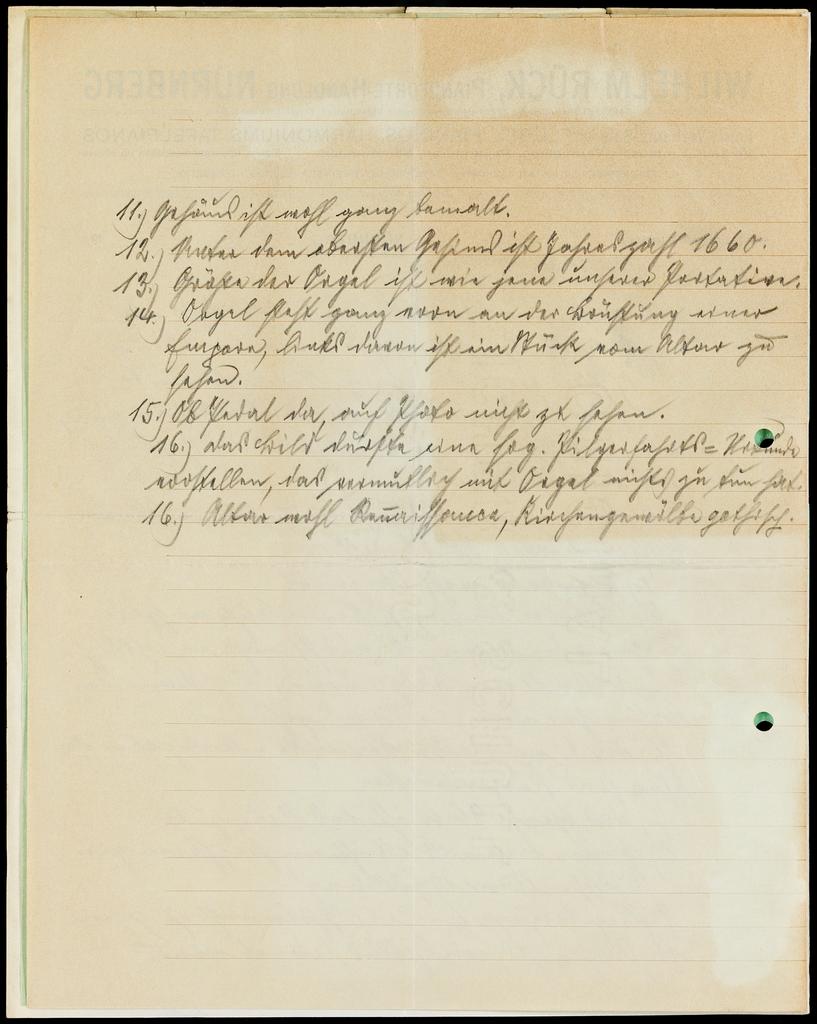 11.) Gehäus ist wohl ganz bemalt.
12.) Unter dem obersten Gesims ist Jahreszahl 1660.
13.) Größe der Orgel ist wie jene unserer Portative.
14.) Orgel steht ganz vorn an der Brüstung einer
Empore, links davon ist ein Stück vom Altar zu
sehen.
15.) Ob Pedal da, auf Photo nicht zu sehen.
16.) das Bild dürfte eine sog. Pilgerfahrts= Urkunde
vorstellen, das vermutlich mit Orgel nichts zu tun hat.
16.) Altar wohl Renaissance, Kirchengewölbe gothisch.